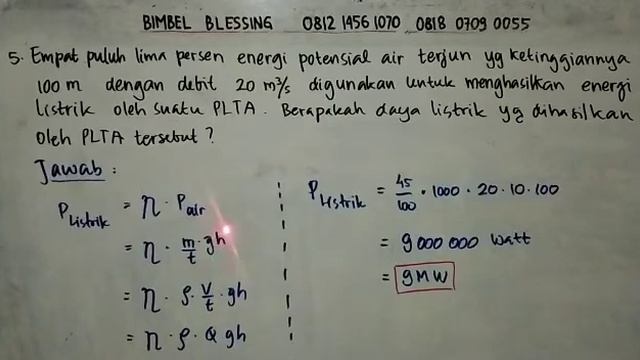 BIMBEL BLESSING 0812 1456 1070 0818 0709 0055
5. Empat puluh lima persen energi potensial air terjun yg ketinggiannya
100 m dengan debit 20 m³/s digunakan untuk menghasilkan energi
listrik oleh suatu PLTA. Berapakah daya listrik yg dihasilkan
oleh PLTA tersebut ?
Jawab :
P Listrik = η · Pair
= η · m/t · gh
= η · ρ · V/t · gh
= η · ρ · Q gh
P Listrik = 45/100 · 1000 · 20 · 10 · 100
= 9 000 000 watt
= 9 MW